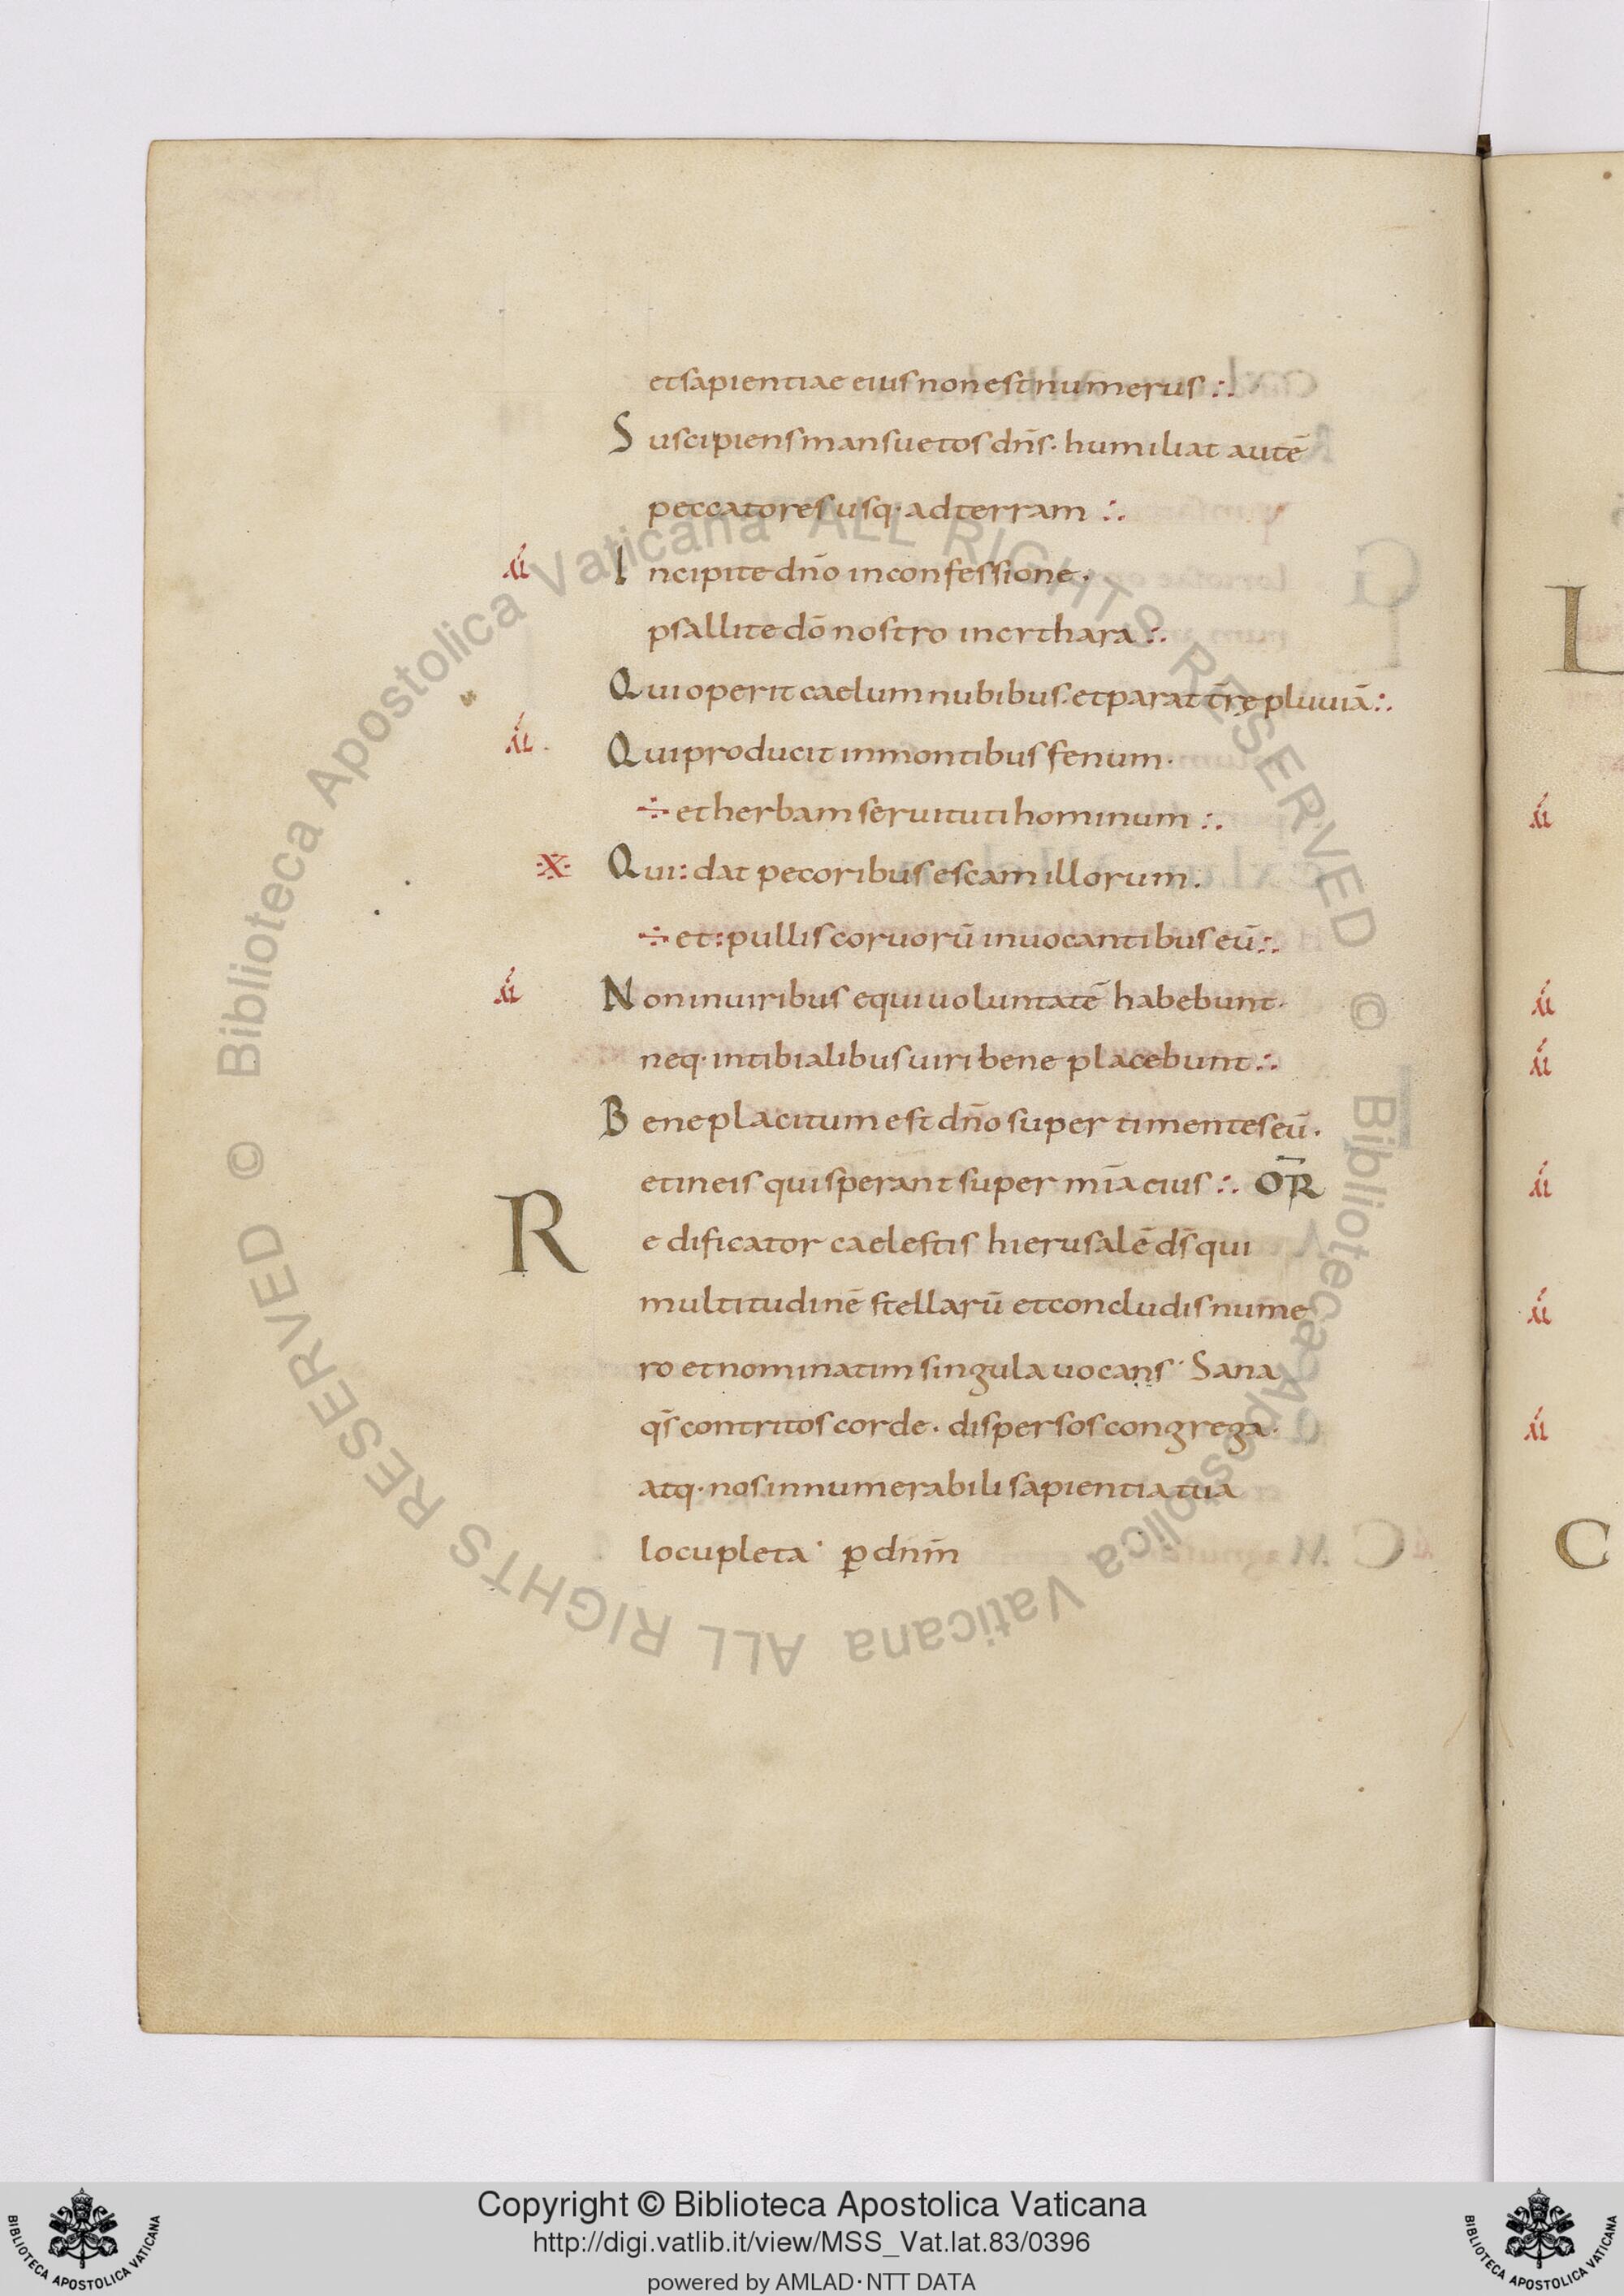 et sapientiae eius non est numerus :.
Suscipiens mansuetos dn̄s· humiliat autē
peccatores usq· ad terram :.
Incipite dn̄o in confessione·
psallite dō nostro in cithara :.
Qui operit caelum nubibus· et parat t̄rę pluuiā :.
Qui producit in montibus fenum·
÷ et herbam seruituti hominum :.
·X· Qui : dat pecoribus escam illorum·
÷ et : pullis coruorū inuocantibus eū :.
Non in uiribus equi uoluntatē habebunt·
neq· in tibialibus uiri bene placebunt :.
Bene placitum est dn̄o super timentes eū·
et in eis qui sperant super mīa eius :. OR̄
Redificator caelestis hierusalē d̄s qui
multitudinē stellarū et concludis nume
ro et nominatim singula uocans· Sana
q̄s contritos corde· dispersos congrega·
atq· nos innumerabili sapientia tua
locupleta· ꝑ dnm̄
L
C
Biblioteca Apostolica Vaticana ALL RIGHTS RESERVED ©
Biblioteca Apostolica Vaticana ALL RIGHTS RESERVED ©
Copyright © Biblioteca Apostolica Vaticana
http://digi.vatlib.it/view/MSS_Vat.lat.83/0396
powered by AMLAD·NTT DATA
BIBLIOTECA APOSTOLICA VATICANA
BIBLIOTECA APOSTOLICA VATICANA